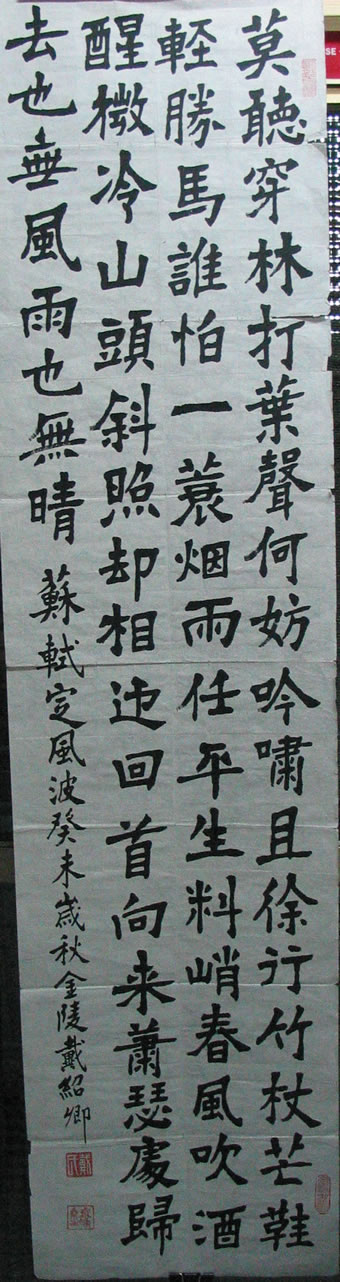 莫聽穿林打葉聲何妨吟嘯且徐行竹杖芒鞋
輕勝馬誰怕一蓑烟雨任平生料峭春風吹酒
醒微冷山頭斜照却相迎回首向来蕭瑟處歸
去也無風雨也無晴 蘇軾定風波癸未歲秋金陵戴紹卿